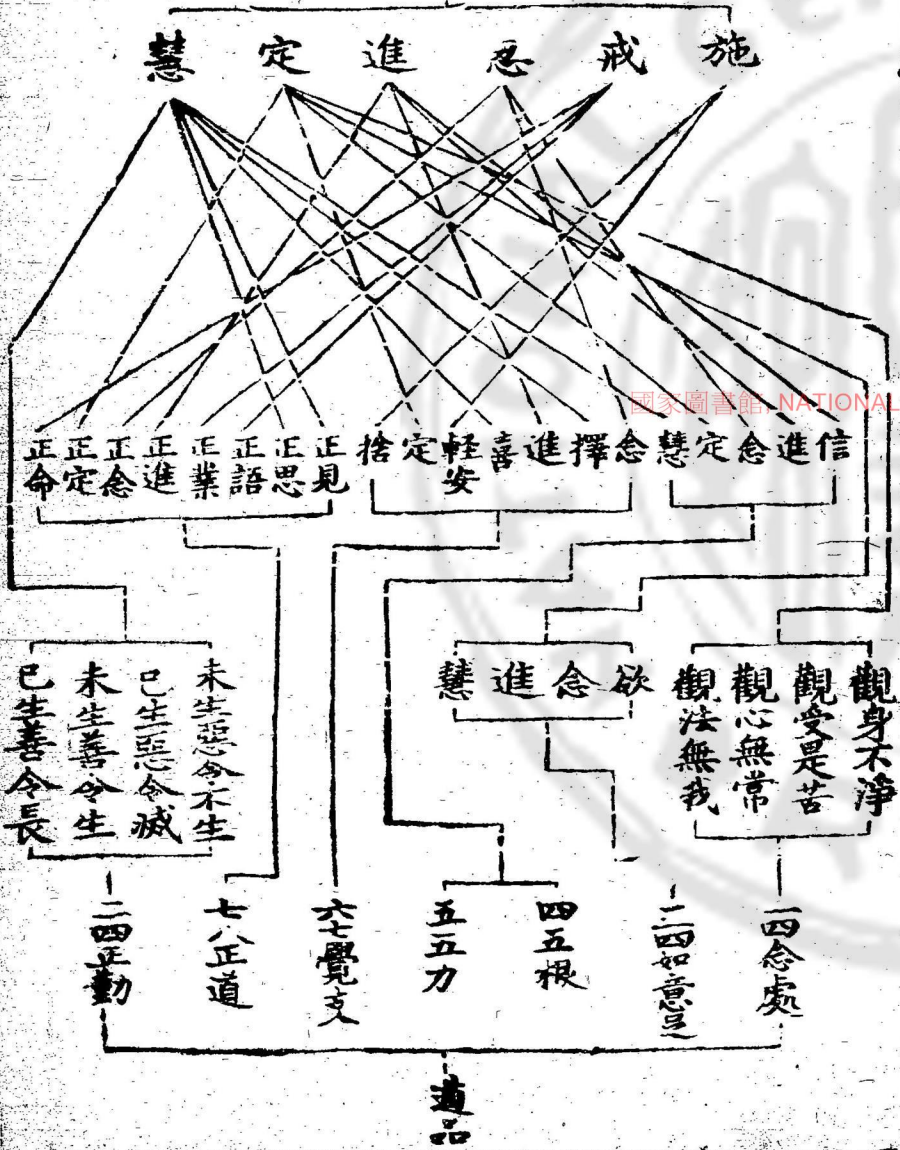 施 戒 忍 定 進 慧
國家圖書館, NATIONAL
信 進 念 定 慧
念 擇 進 喜 軽安 定 捨
正見 正思 正語 正業 正進 正念 正定 正命
觀身不淨
觀受是苦
觀心無常
觀法無我
欲 念 進 慧
未生惡令不生
已生惡令滅
未生善令生
已生善令長
一四念處
二四如意足
四五根
五五力
六七覺支
七八正道
二四正勤
道品